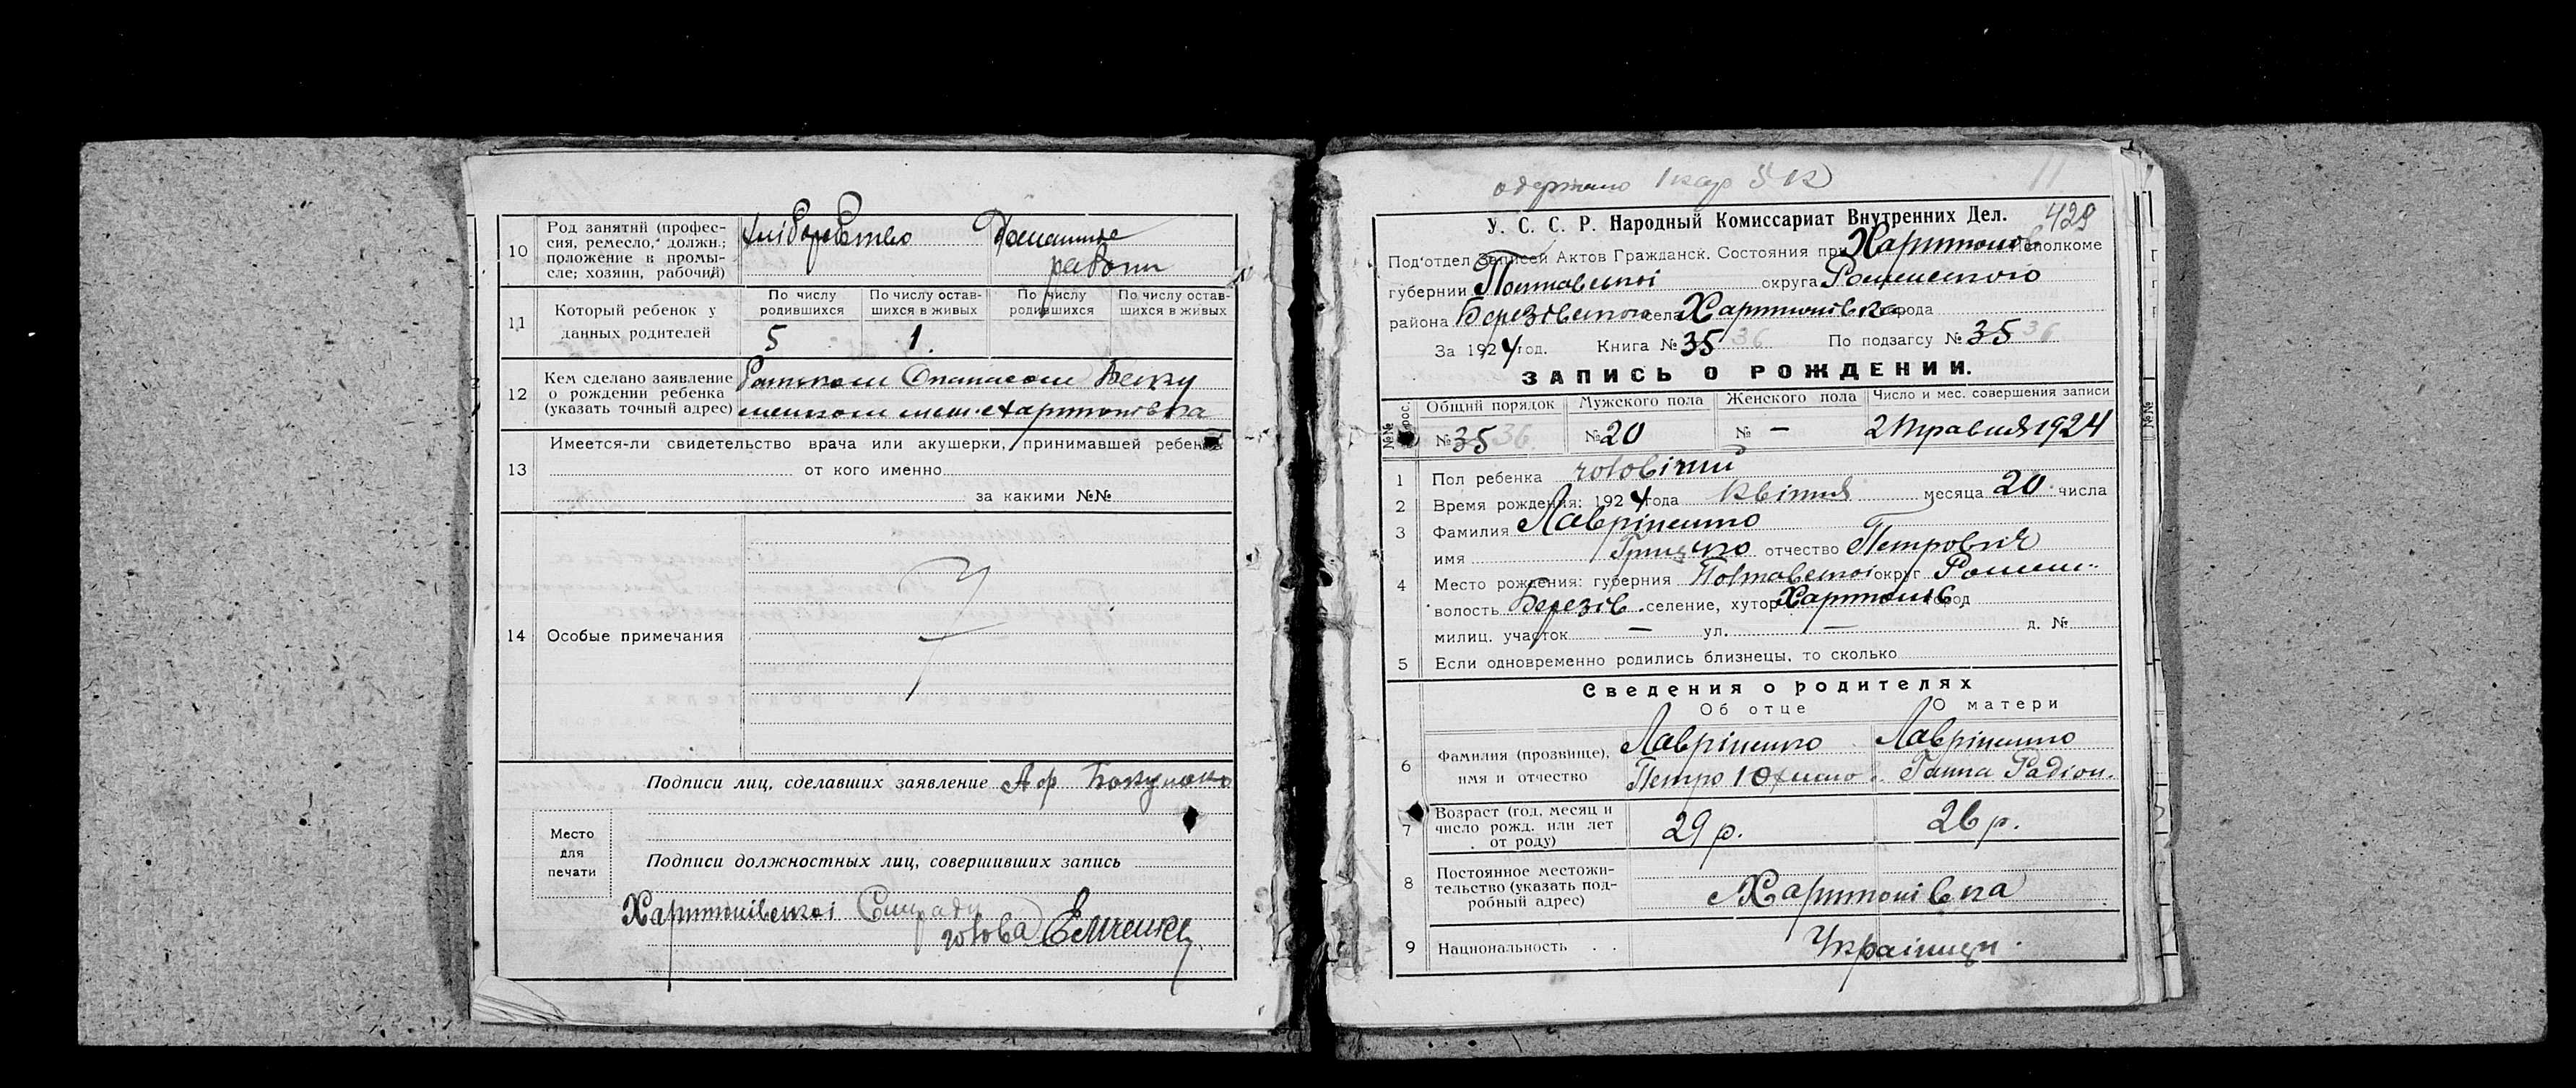 10 Род занятий (профес-
сия, ремесло, должн.;
положение в промы-
сле; хозяин, рабочий)
хліборобство Домашне
работи
11 Который ребенок у
данных родителей
По числу
родившихся
По числу остав-
шихся в живых
По числу
родившихся
По числу остав-
шихся в живых
5 1.
12 Кем сделано заявление
о рождении ребенка
(указать точный адрес)
Опанасом
меш. Хартонівка
Имеется-ли свидетельство врача или акушерки, принимавшей ребенка
13 от кого именно
за какими №№
14 Особые примечания
Подписи лиц, сделавших заявление Аф
Место
для
печати
Подписи должностных лиц, совершивших запись
Харитонівської Сільради
голова Ємченко
одержано 1 кар
У. С. С. Р. Народный Комиссариат Внутренних Дел. 429
Под'отдел Записей Актов Гражданск. Состояния при Харитонов Исполкоме
губернии Полтавської округа Роменского
района Березівського села Харитонівка города
За 1924 год. Книга № 35 36 По подзагсу № 35 36
ЗАПИСЬ О РОЖДЕНИИ.
№№ Общий порядок Мужского пола Женского пола Число и мес. совершения записи
№ 35 36 № 20 № — 2 травня 1924
1 Пол ребенка чоловічий
2 Время рождения: 1924 года квітня месяца 20 числа
3 Фамилия Лавріненко
имя Грицько отчество Петрович
4 Место рождения: губерния Полтавської округ Ромен.
волость Березів. селение, хутор Харитонів. город
милиц. участок — ул. — д. №
5 Если одновременно родились близнецы, то сколько
Сведения о родителях
Об отце О матери
6 Фамилия (прозвище),
имя и отчество
Лавріненко Лавріненко
Петро Юхимов. Ганна Радіон.
7 Возраст (год, месяц и
число рожд. или лет
от роду)
29 р. 26 р.
8 Постоянное местожи-
тельство (указать под-
робный адрес)
Харитонівка
9 Национальность . . Українци.